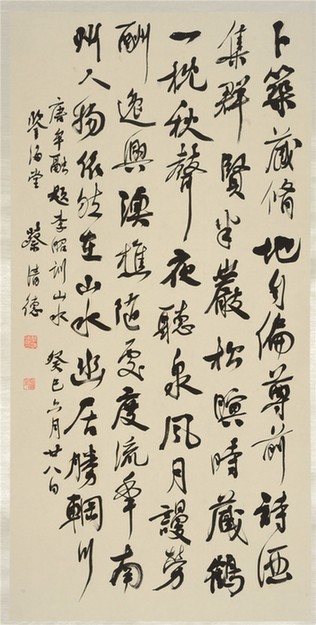 卜築藏脩地自偏尊前詩酒
集群賢半巖松暝時藏鶴
一枕秋聲夜聽泉風月謾勞
酬逸興漁樵隨處度流年南
州人物依然在山水幽居勝輞川
唐牟融題李昭訓山水 癸巳六月廿八日
海堂 蔡清德